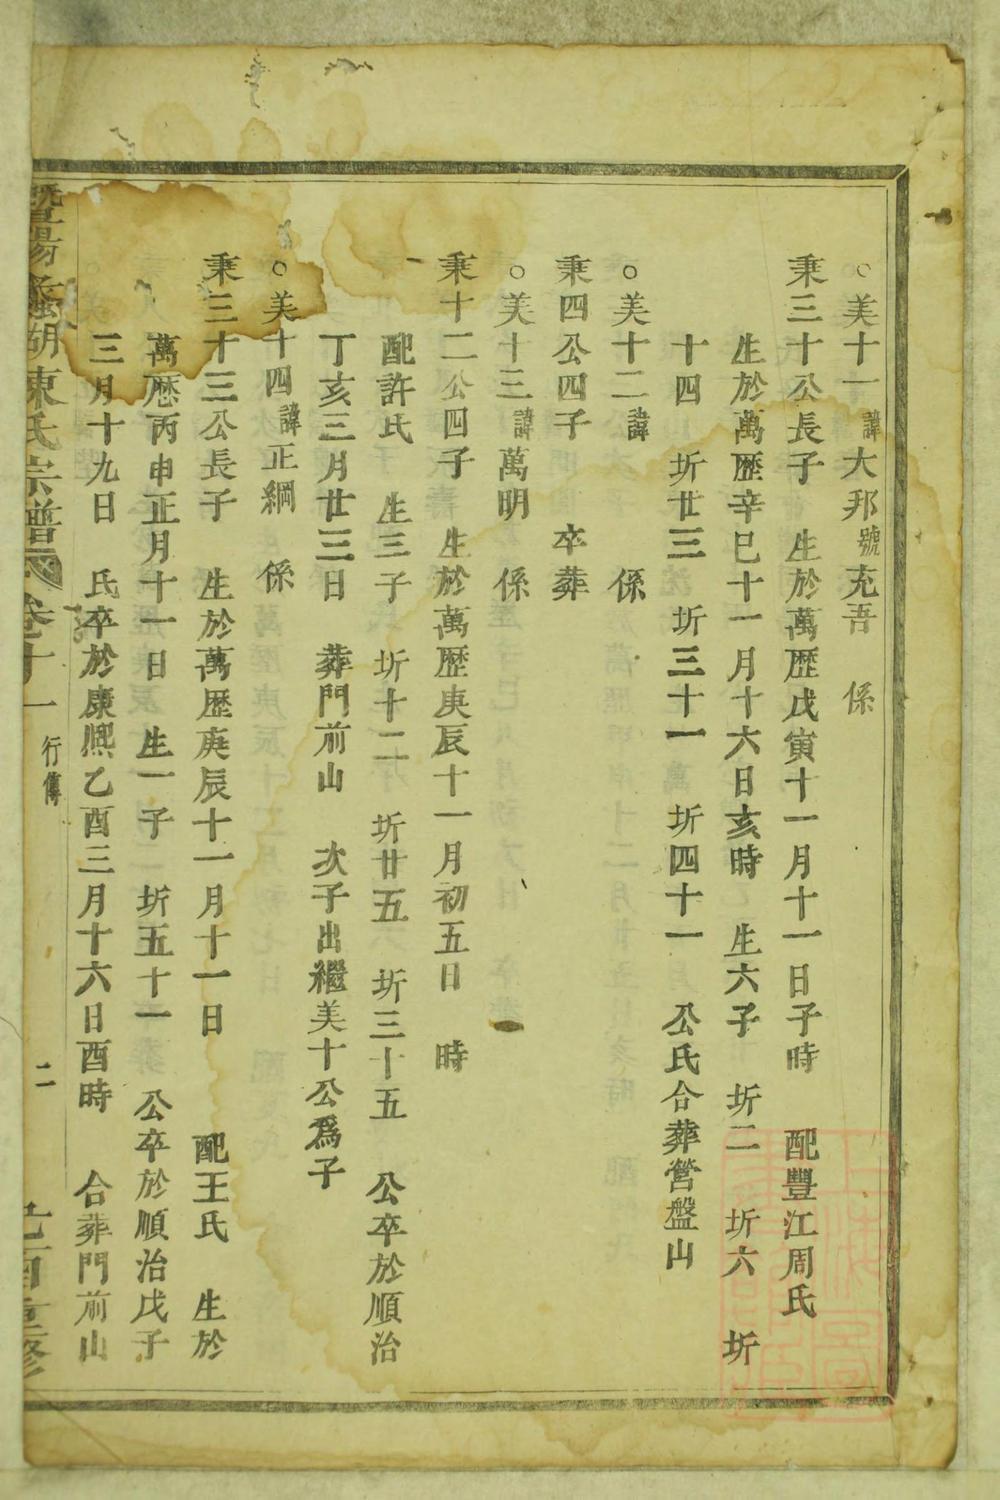 ○美十一諱大邦號充吾　係
秉三十公長子　生於萬歷戊寅十一月十一日子時　配豐江周氏
生於萬歷辛巳十一月十六日亥時　生六子　圻二　圻六　圻
十四　圻廿三　圻三十一　圻四十一　公氏合葬營盤山
○美十二諱　　係
秉四公四子　卒葬
○美十三諱萬明　係
秉十二公四子　生於萬歷庚辰十一月初五日　時
配許氏　生三子　圻十二　圻廿五　圻三十五　公卒於順治
丁亥三月廿三日　葬門前山　次子出繼美十公爲子
○美十四諱正綱　係
秉三十三公長子　生於萬歷庚辰十一月十一日　配王氏　生於
萬歷丙申正月十一日　生一子　圻五十一　公卒於順治戊子
三月十九日　氏卒於康熙乙酉三月十六日酉時　合葬門前山
暨陽　湖陳氏宗譜　卷十一　行傳　二　重修